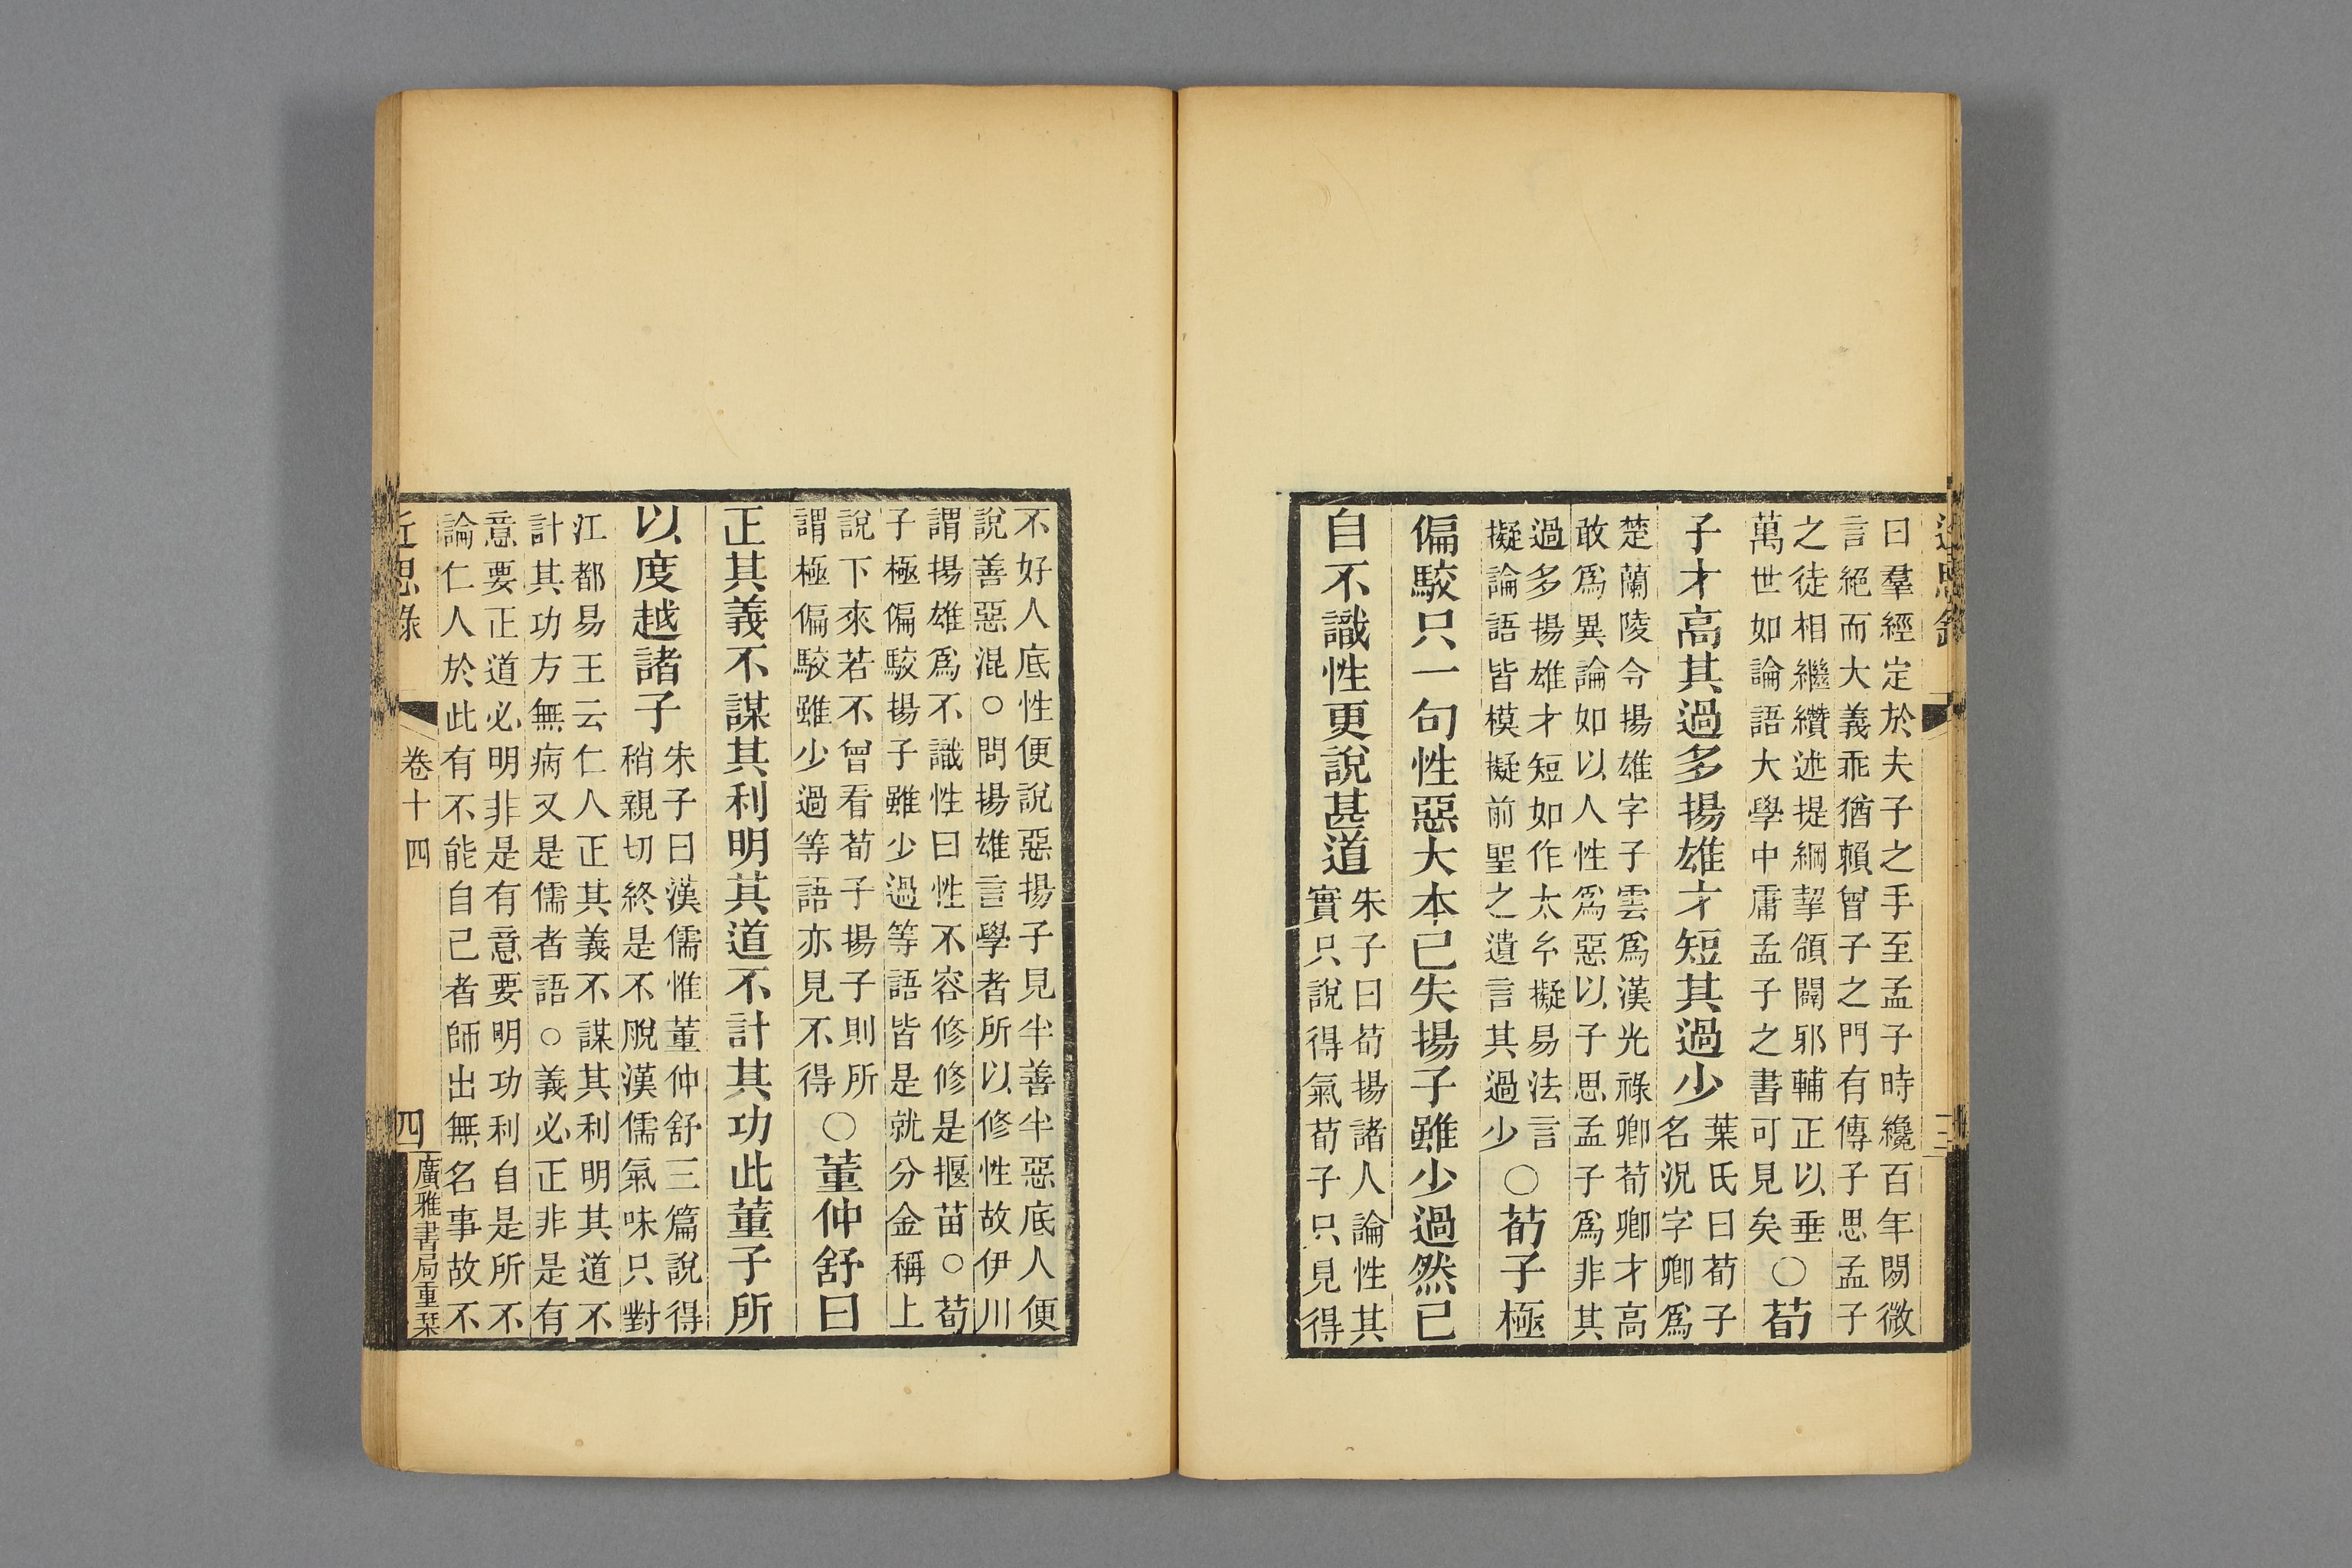 近思錄
三
曰羣經定於夫子之手至孟子時纔百年閒微
言絕而大義乖猶賴曾子之門有傳子思孟子
之徒相繼纘述提綱挈領闢邪輔正以垂
萬世如論語大學中庸孟子之書可見矣
○荀
子才高其過多揚雄才短其過少
葉氏曰荀子
名況字卿爲
楚蘭陵令揚雄字子雲爲漢光祿卿荀卿才高
敢爲異論如以人性爲惡以子思孟子爲非其
過多揚雄才短如作太玄擬易法言
擬論語皆模擬前聖之遺言其過少
○荀子極
偏駮只一句性惡大本已失揚子雖少過然已
自不識性更說甚道
朱子曰荀揚諸人論性其
實只說得氣荀子只見得
不好人底性便說惡揚子見半善半惡底人便
說善惡混○問揚雄言學者所以修性故伊川
謂揚雄爲不識性曰性不容修修是揠苗○荀
子極偏駮揚子雖少過等語皆是就分金稱上
說下來若不曾看荀子揚子則所
謂極偏駮雖少過等語亦見不得
○董仲舒曰
正其義不謀其利明其道不計其功此董子所
以度越諸子
朱子曰漢儒惟董仲舒三篇說得
稍親切終是不脫漢儒氣味只對
江都易王云仁人正其義不謀其利明其道不
計其功方無病又是儒者語○義必正非是有
意要正道必明非是有意要明功利自是所不
論仁人於此有不能自己者師出無名事故不
近思錄
卷十四
四
廣雅書局重栞